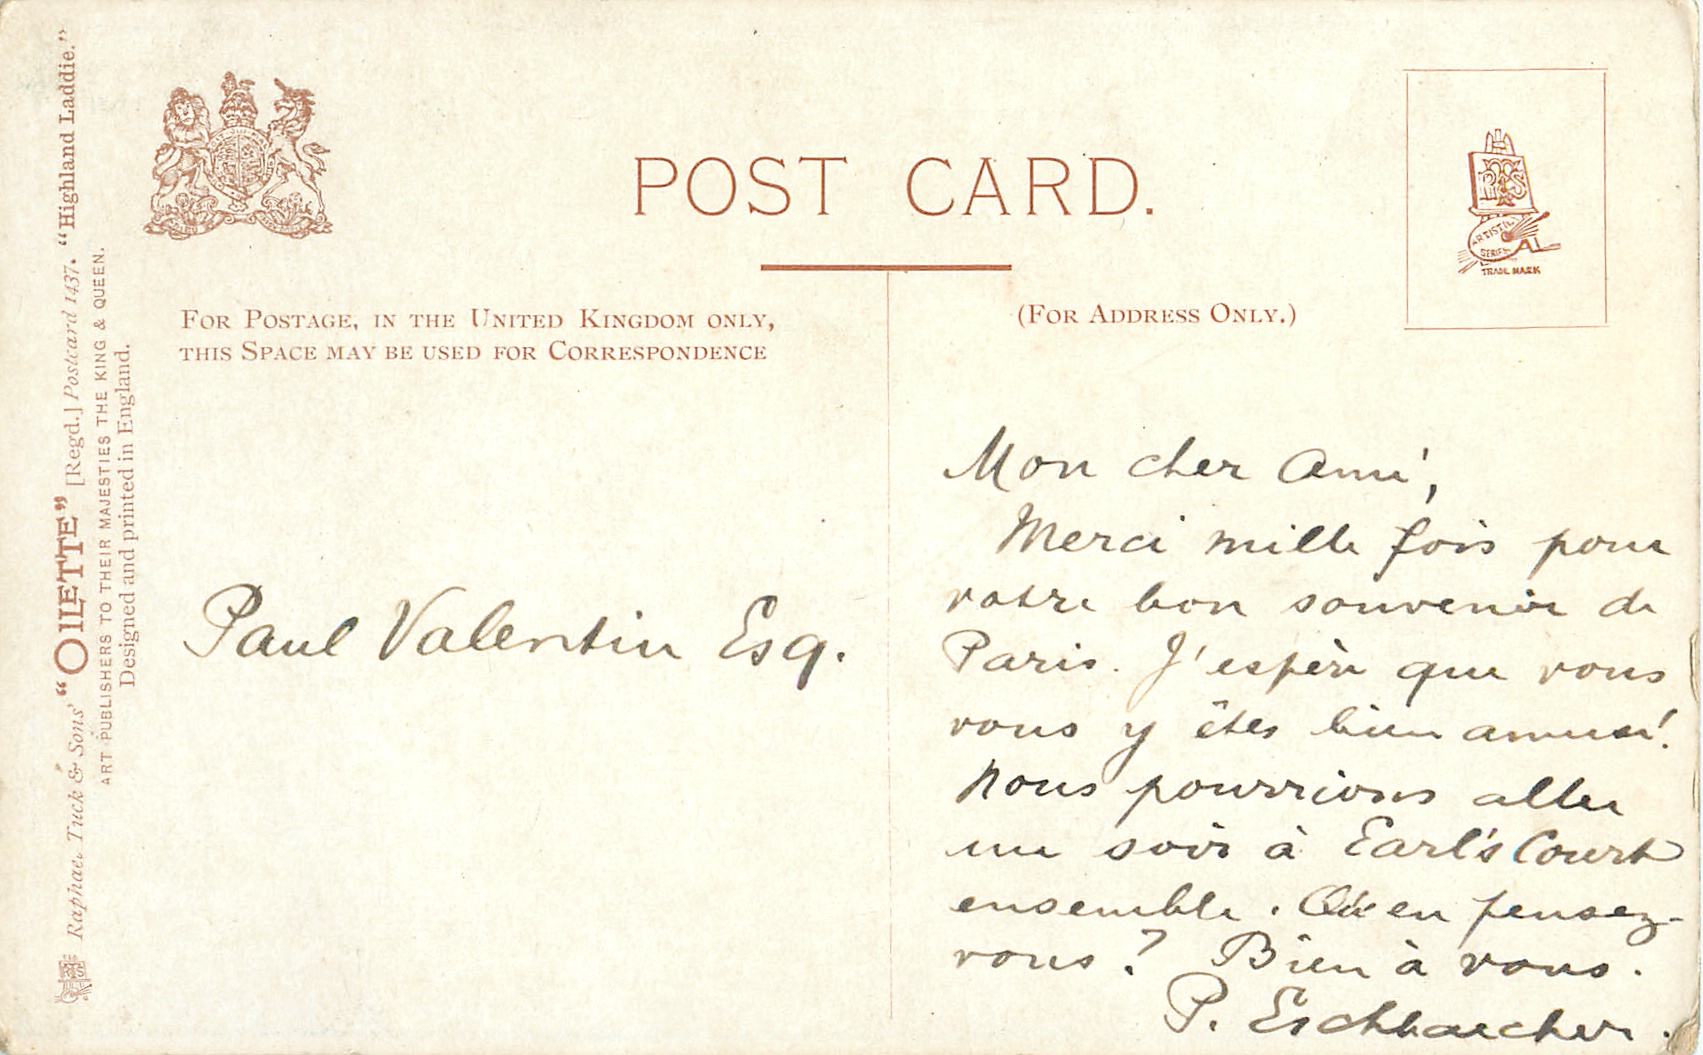 Raphael Tuck & Sons' "OILETTE" [Regd.] Postcard 1437. "Highland Laddie."
ART PUBLISHERS TO THEIR MAJESTIES THE KING & QUEEN.
Designed and printed in England.
POST CARD.
FOR POSTAGE, IN THE UNITED KINGDOM ONLY,
THIS SPACE MAY BE USED FOR CORRESPONDENCE
(FOR ADDRESS ONLY.)
ARTISTIC
SERIES
TRADE MARK
Paul Valentin Esq.
Mon cher Ami,
Merci mille fois pour
votre bon souvenir de
Paris. J'espère que vous
vous y êtes bien amusé!
Nous pourrions aller
un soir à Earl's Court
ensemble. Qu'en pensez-
vous? Bien à vous.
P. Eschbaecher.